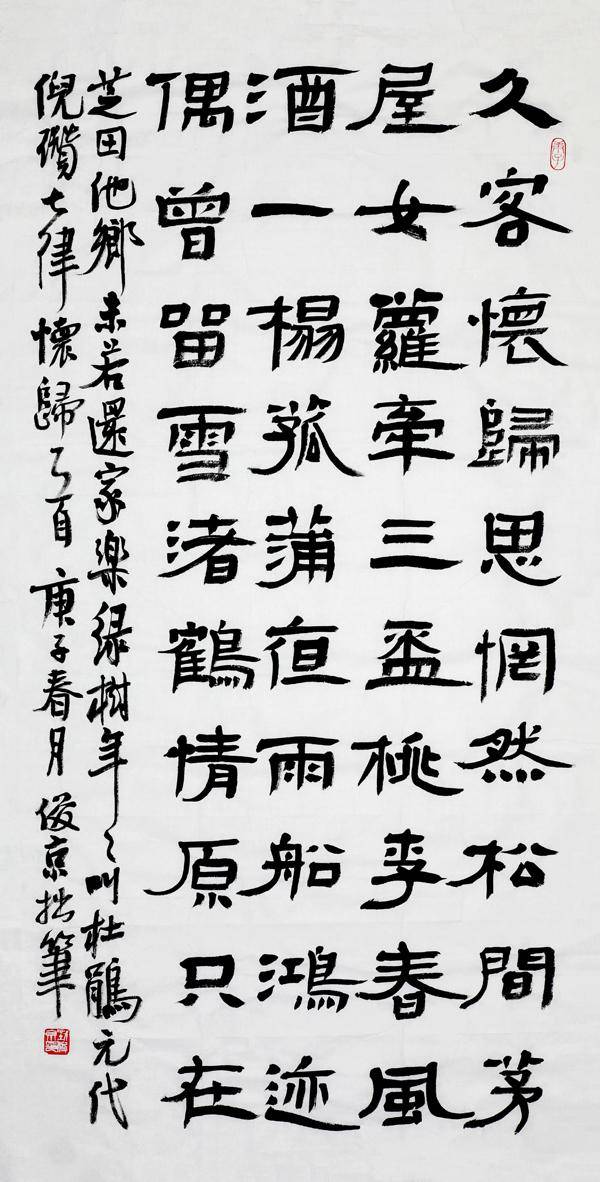 久客懷歸思惘然松間茅
屋女蘿牽三盃桃李春風
酒一榻菰蒲夜雨船鴻迹
偶曾留雪渚鶴情原只在
芝田他鄉未若還家樂綠樹年〻叫杜鵑元代
倪瓚七律懷歸乙首庚子春月俊京拙筆